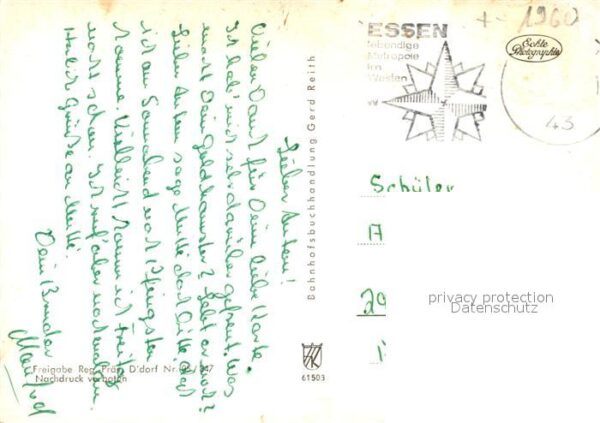 Lieber Anton!
Vielen Dank für Deine liebe Karte.
Ich hab' mich sehr darüber gefreut. Was
macht Dein Goldhamster? Lebt er noch?
Lieber Anton sage Mutti doch bitte, daß
ich am Sonnabend vor Pfingsten
komme. Vielleicht komme ich Freitag
noch schon. Ich ruf' aber noch an.
Herzl. Grüße an Mutti.
Dein Bruder
Manfred
Freigabe Reg. Präs. D'dorf Nr.
Nachdruck verboten
Bahnhofsbuchhandlung Gerd Reith
61503
ESSEN
lebendige
Metropole
im
Westen
1960
Echte
Photographie
43
Schüler
A
privacy protection
Datenschutz